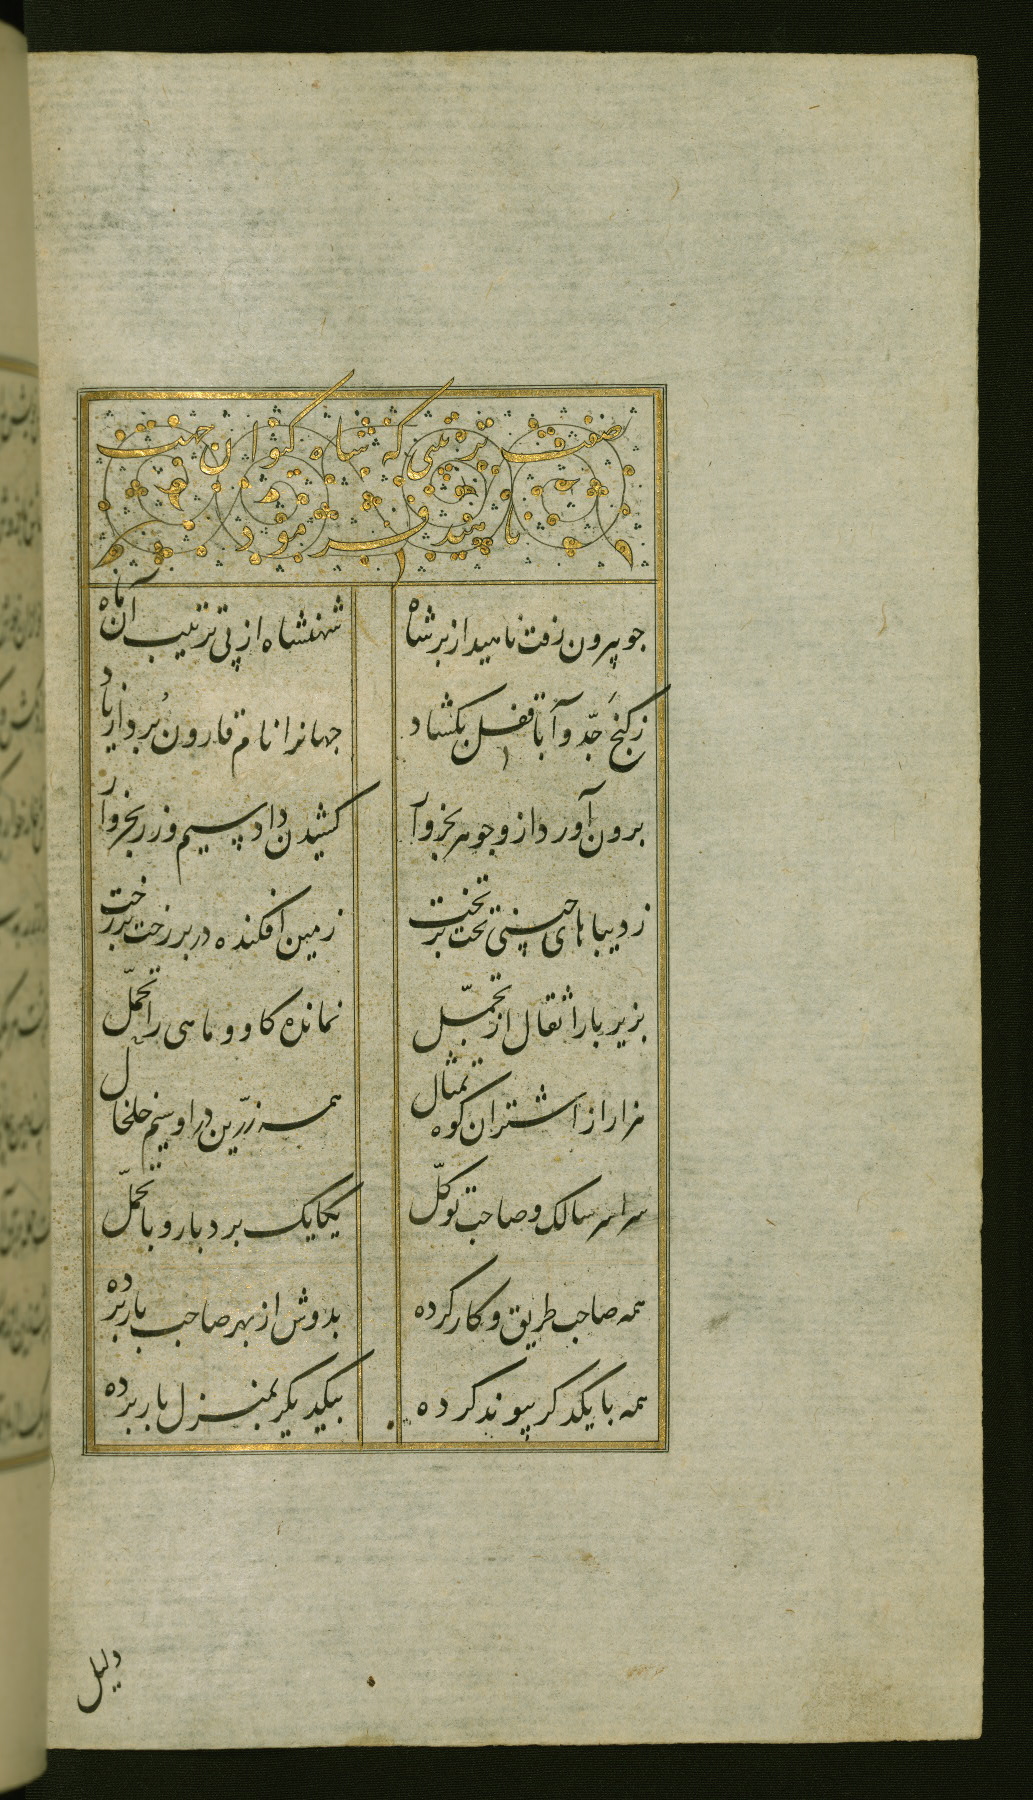 صفت ترتیبی که شاه کیوان جهت
ناهید فرمود
چو بیرون رفت ناهید از بر شاه
شهنشاه از پی ترتیب آن ماه
ز کنج جدّ و آبا قفل بکشاد
جهانرا نام قارون بُرد از یاد
برون آورد از وجوهر بخروار
کشیدن داد سیم و زر بخروار
ز دیباهای چینی تخت بر تخت
زمین افکنده در بر رخت بر رخت
بزیر بار اثقال از تجمّل
نمانده کاو و ماهی را تحمّل
هزار از اشتران کوه تمثال
همه زرّین درا و سیم خلخال
سراسر سالک و صاحب توکّل
یکایک بردبار و با تحمّل
همه صاحب طریق و کار کرده
بدوش از بهر صاحب بار برده
همه با یکدکر پیوند کرده
بیکدیکر بمنزل بار برده
دلیل